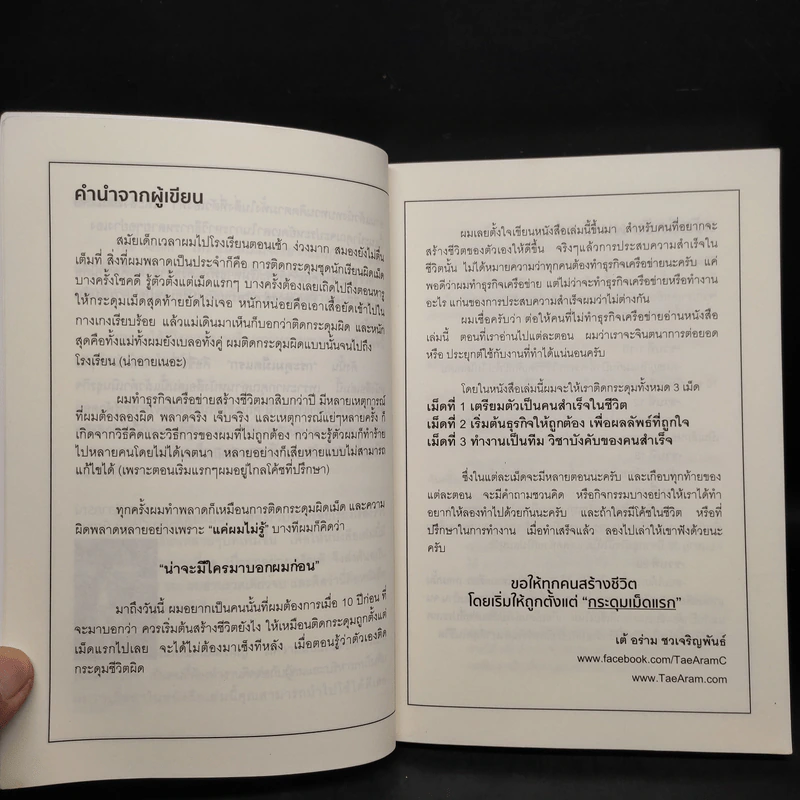 คำนำจากผู้เขียน
สมัยเด็กเวลาผมไปโรงเรียนตอนเช้า ง่วงมาก สมองยังไม่ตื่น
เต็มที่ สิ่งที่ผมพลาดเป็นประจำก็คือ การติดกระดุมชุดนักเรียนผิดเม็ด
บางครั้งโชคดี รู้ตัวตั้งแต่เม็ดแรกๆ บางครั้งต้องเลยเถิดไปถึงตอนหารู
ให้กระดุมเม็ดสุดท้ายยัดไม่เจอ หนักหน่อยคือเอาเสื้อยัดเข้าไปใน
กางเกงเรียบร้อย แล้วแม่เดินมาเห็นก็บอกว่าติดกระดุมผิด และหนัก
สุดคือทั้งแม่ทั้งผมยังเบลอทั้งคู่ ผมติดกระดุมผิดแบบนั้นจนไปถึง
โรงเรียน (น่าอายเนอะ)
ผมทำธุรกิจเครือข่ายสร้างชีวิตมาสิบกว่าปี มีหลายเหตุการณ์
ที่ผมต้องลองผิด พลาดจริง เจ็บจริง และเหตุการณ์แย่ๆหลายครั้ง ก็
เกิดจากวิธีคิดและวิธีการของผมที่ไม่ถูกต้อง กว่าจะรู้ตัวผมก็ทำร้าย
ไปหลายคนโดยไม่ได้เจตนา หลายอย่างก็เสียหายแบบไม่สามารถ
แก้ไขได้ (เพราะตอนเริ่มแรกๆผมอยู่ไกลโค้ชที่ปรึกษา)
ทุกครั้งผมทำพลาดก็เหมือนการติดกระดุมผิดเม็ด และความ
ผิดพลาดหลายอย่างเพราะ “แค่ผมไม่รู้” บางทีผมก็คิดว่า
“น่าจะมีใครมาบอกผมก่อน”
มาถึงวันนี้ ผมอยากเป็นคนนั้นที่ผมต้องการเมื่อ 10 ปีก่อน ที่
จะมาบอกว่า ควรเริ่มต้นสร้างชีวิตยังไง ให้เหมือนติดกระดุมถูกตั้งแต่
เม็ดแรกไปเลย จะได้ไม่ต้องมาเซ็งทีหลัง เมื่อตอนรู้ว่าตัวเองติด
กระดุมชีวิตผิด
ผมเลยตั้งใจเขียนหนังสือเล่มนี้ขึ้นมา สำหรับคนที่อยากจะ
สร้างชีวิตของตัวเองให้ดีขึ้น จริงๆแล้วการประสบความสำเร็จใน
ชีวิตนั้น ไม่ได้หมายความว่าทุกคนต้องทำธุรกิจเครือข่ายนะครับ แค่
พอดีว่าผมทำธุรกิจเครือข่าย แต่ไม่ว่าจะทำธุรกิจเครือข่ายหรือทำงาน
อะไร แก่นของการประสบความสำเร็จผมว่าไม่ต่างกัน
ผมเชื่อครับว่า ต่อให้คนที่ไม่ทำธุรกิจเครือข่ายอ่านหนังสือ
เล่มนี้ ตอนที่เราอ่านไปแต่ละตอน ผมว่าเราจะจินตนาการต่อยอด
หรือ ประยุกต์ใช้กับงานที่ทำได้แน่นอนครับ
โดยในหนังสือเล่มนี้ผมจะให้เราติดกระดุมทั้งหมด 3 เม็ด
เม็ดที่ 1 เตรียมตัวเป็นคนสำเร็จในชีวิต
เม็ดที่ 2 เริ่มต้นธุรกิจให้ถูกต้อง เพื่อผลลัพธ์ที่ถูกใจ
เม็ดที่ 3 ทำงานเป็นทีม วิชาบังคับของคนสำเร็จ
ซึ่งในแต่ละเม็ดจะมีหลายตอนนะครับ และเกือบทุกท้ายของ
แต่ละตอน จะมีคำถามชวนคิด หรือกิจกรรมบางอย่างให้เราได้ทำ
อยากให้ลองทำไปด้วยกันนะครับ และถ้าใครมีโค้ชในชีวิต หรือที่
ปรึกษาในการทำงาน เมื่อทำเสร็จแล้ว ลองไปเล่าให้เขาฟังด้วยนะ
ครับ
ขอให้ทุกคนสร้างชีวิต
โดยเริ่มให้ถูกตั้งแต่ “กระดุมเม็ดแรก”
เต้ อร่าม ชวเจริญพันธ์
www.facebook.com/TaeAramC
www.TaeAram.com